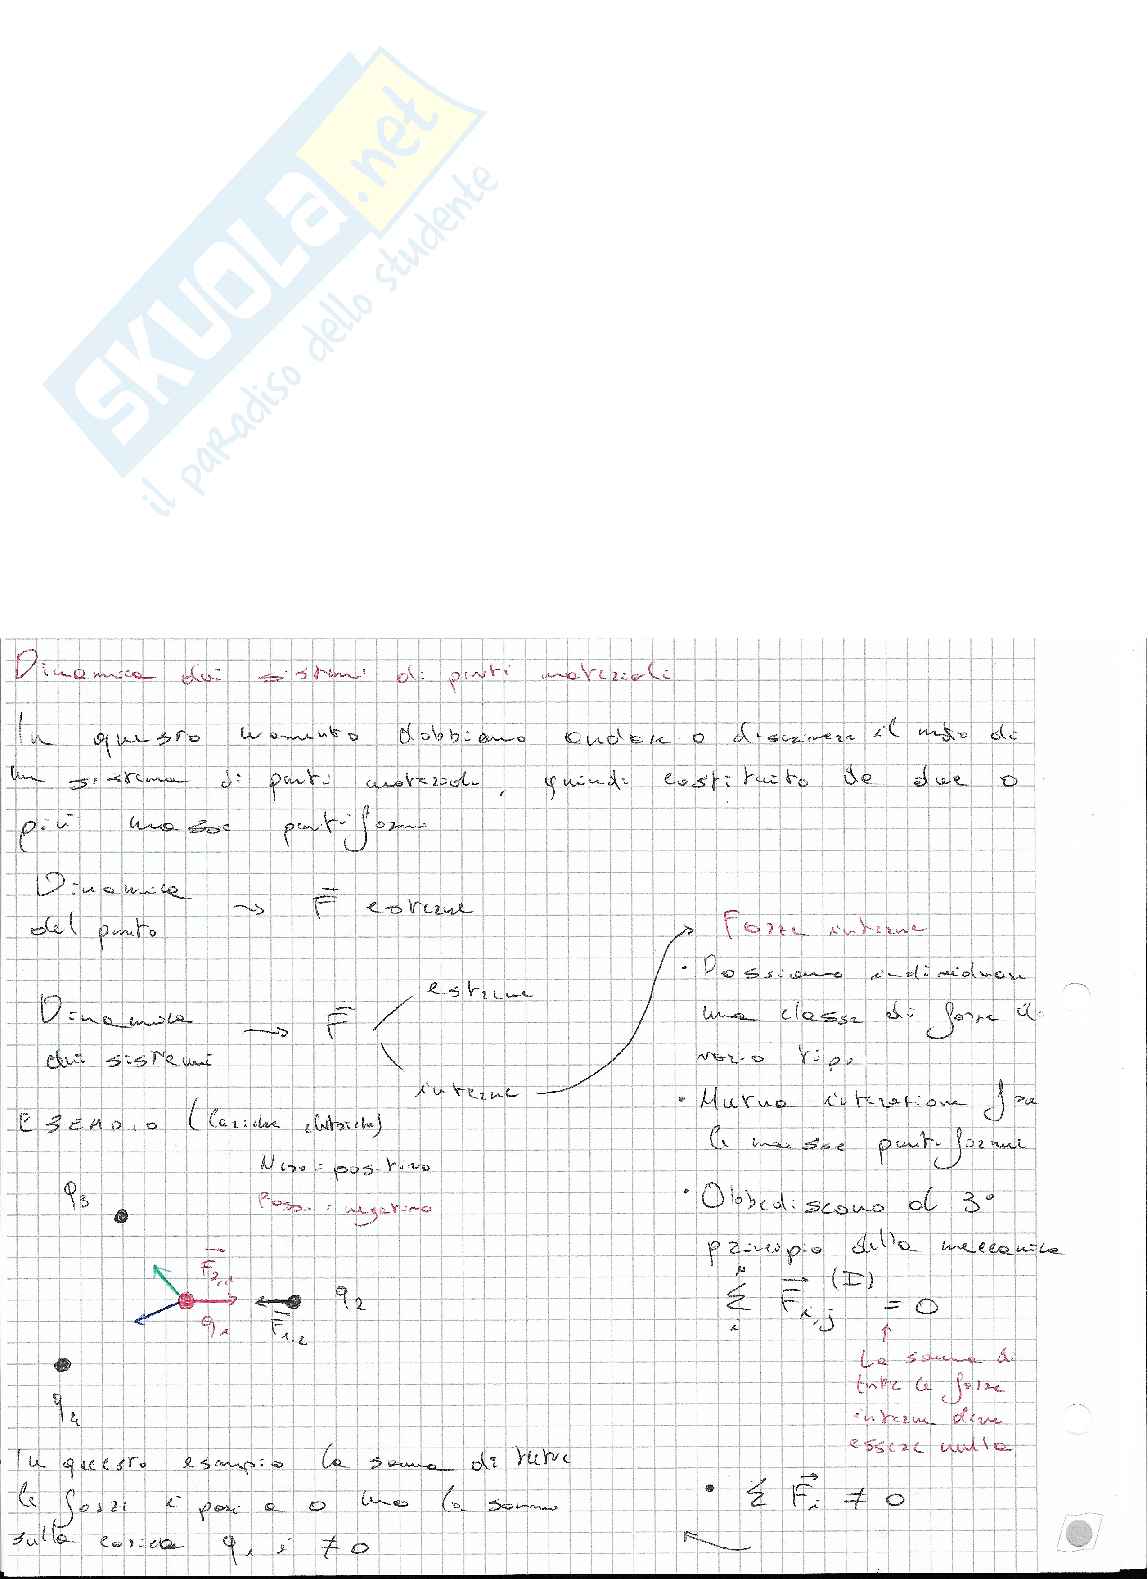 SKUOLA.net
il paradiso dello studente
Dinamica dei sistemi di punti materiali
In questo momento dobbiamo andare a descrivere il moto di
un sistema di punti materiali, quindi costituito da due o
più masse puntiformi
Dinamica
del punto → F esterne
Dinamica
dei sistemi → F esterne
interne
Forze interne
• Possiamo individuare
una classe di forze di
vario tipo
• Mutua interazione fra
le masse puntiformi
• Obbediscono al 3°
principio della meccanica
N
Σ F i,j (I) = 0
i
La somma di
tutte le forze
interne deve
essere nulla
• Σ F i ≠ 0
ESEMPIO (Cariche elettriche)
Nero = positivo
Rosso = negativo
q3
F2,1
q1
F1,2
q2
q4
In questo esempio la somma di tutte
le forze è pari a 0 ma la somma
sulla carica q1 è ≠ 0